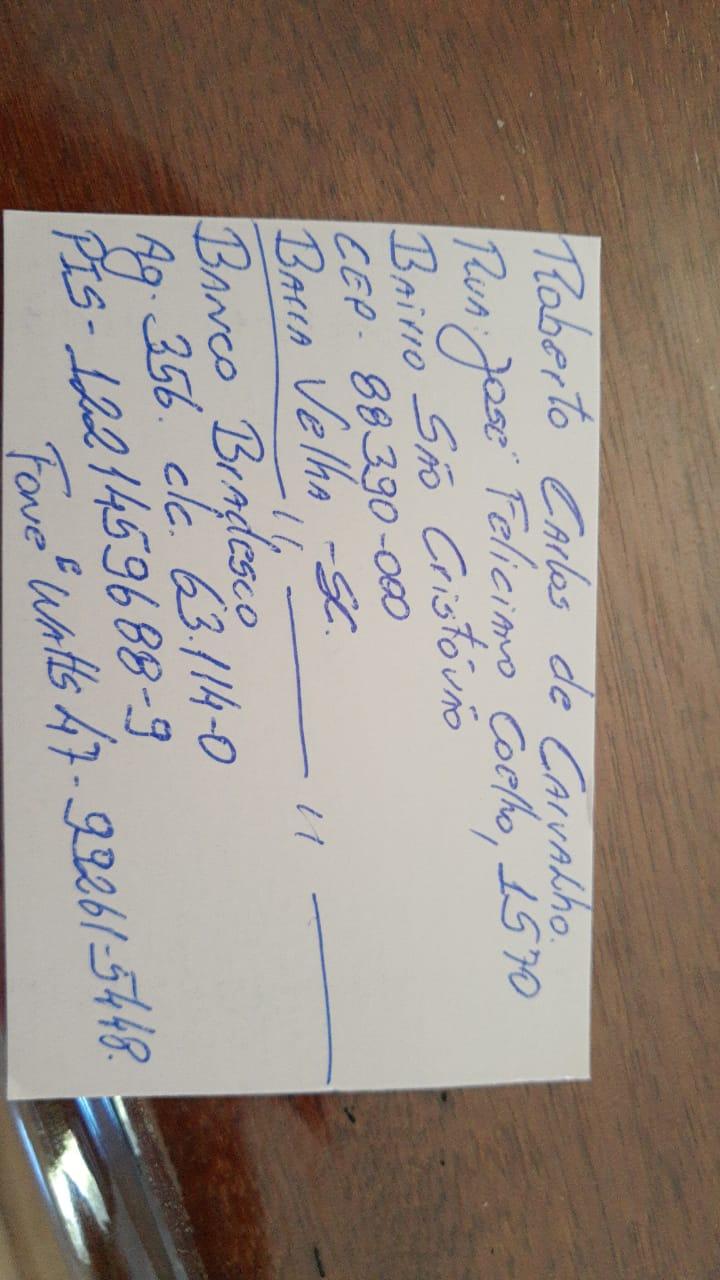 Roberto Carlos de Carvalho.
Rua: José Feliciano Coelho, 1570
Bairro São Cristóvão
CEP. 88390-000
Barra Velha - SC.
Banco Bradesco
Ag. 356. c/c. 63.114-0
PIS - 122 14596 88-9
Fone e Watts 47-99261-5448.